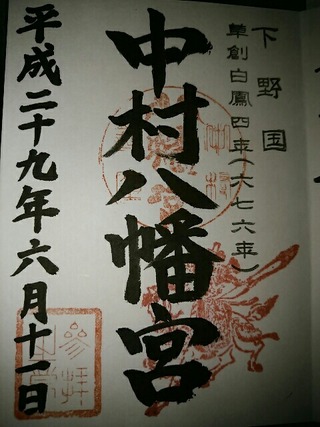 下野国
草創白鳳四年(六七六年)
中村八幡宮
平成二十九年六月十一日